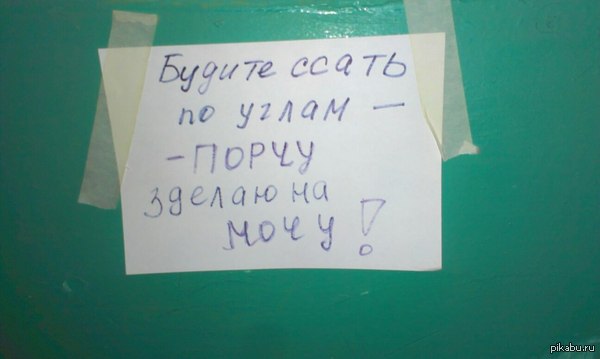 Будите ссать
по углам —
- ПОРЧУ
зделаю на
МОЧУ!
pikabu.ru